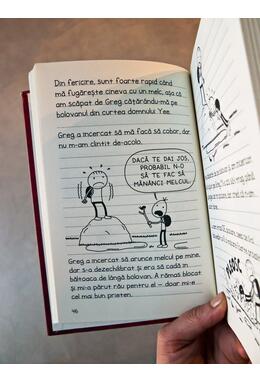 Din fericire, sunt foarte rapid când
mă fugărește cineva cu un melc, așa că
am scăpat de Greg cățărându-mă pe
bolovanul din curtea domnului Yee.
Greg a încercat să mă facă să cobor, dar
nu m-am clintit de-acolo.
DACĂ TE DAI JOS,
PROBABIL N-O
SĂ TE FAC SĂ
MĂNÂNCI MELCUL.
Greg a încercat să arunce melcul pe mine,
dar s-a dezechilibrat și era să cadă în
băltoaca de lângă bolovan. A rămas blocat
și mi-a părut rău pentru el – doar mi-e
cel mai bun prieten.
46